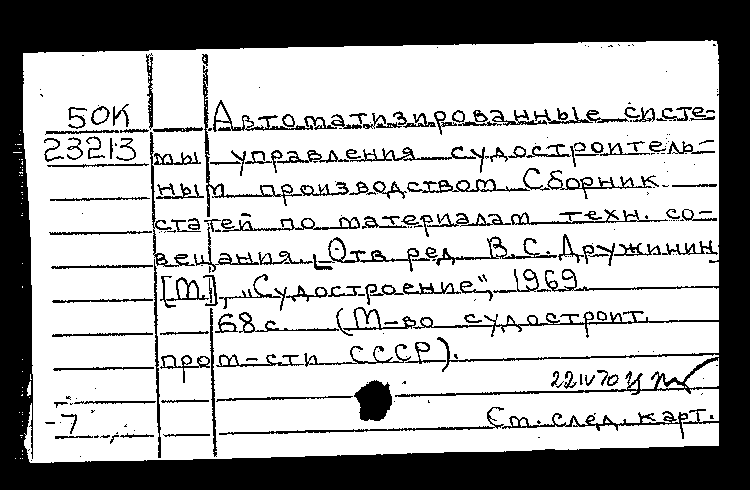 50К Автоматизированные систе-
23213 мы управления судостроитель-
ным производством. Сборник
статей по материалам техн. со-
вещания. [Отв. ред. В.С.Дружинин]
[М.], "Судостроение", 1969.
68 с. (М-во судостроит.
пром-сти СССР).
22 IV 70
-7 См. след. карт.